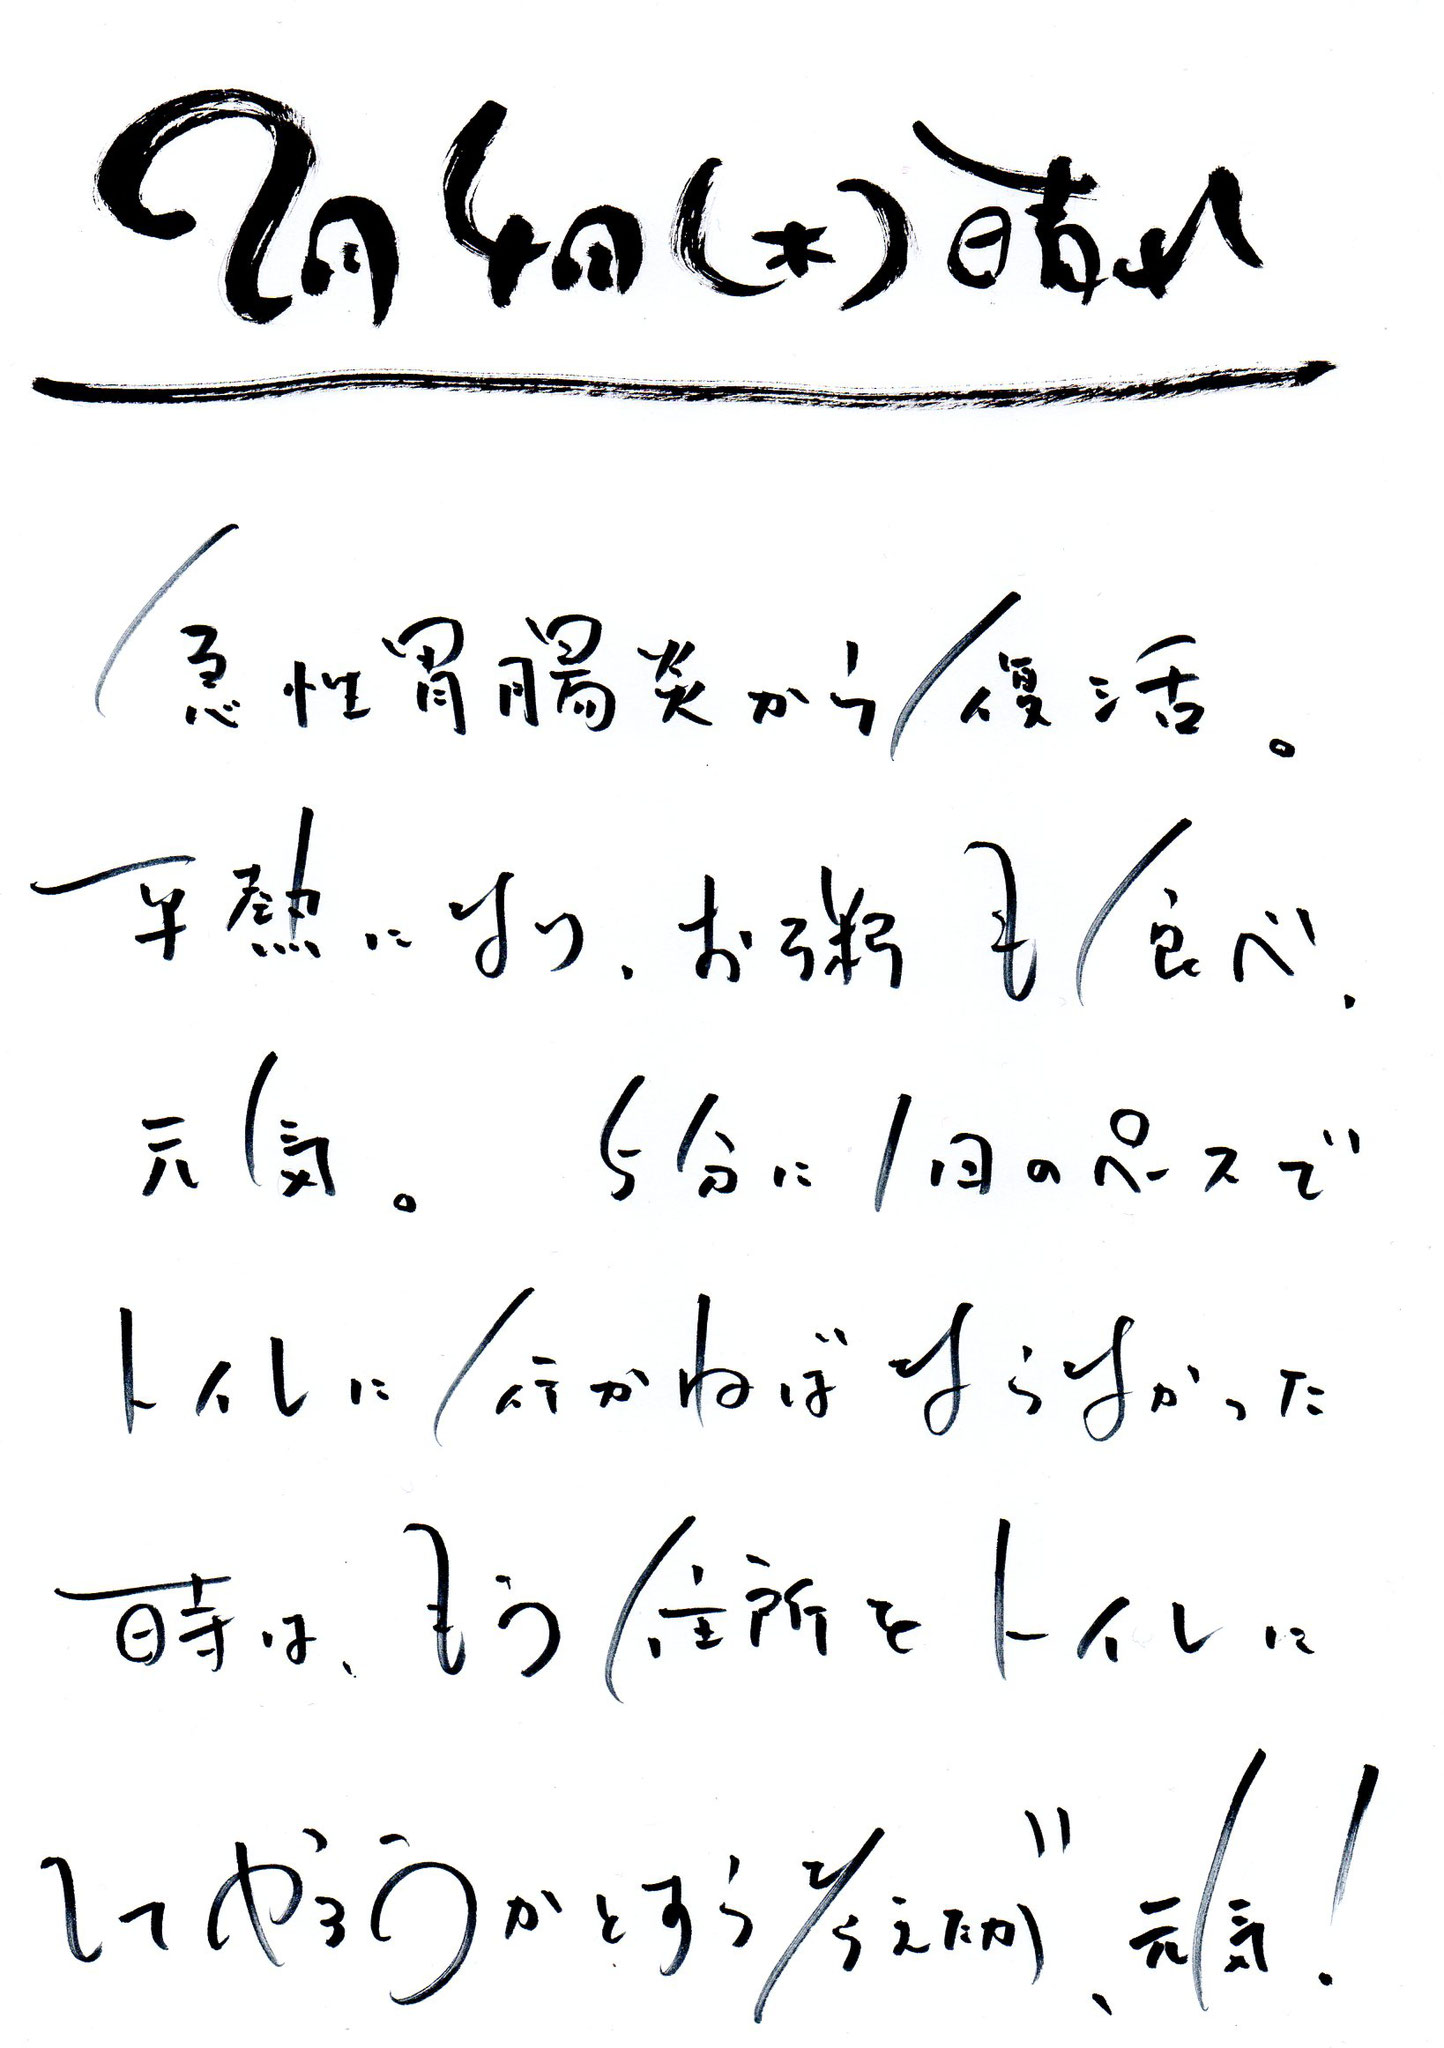 9月4日(木)晴れ
急性胃腸炎から復活。
平熱になり、お粥も食べ、
元気。 5分に1回のペースで
トイレに行かねばならなかった
時は、もう住所をトイレに
してやろうかとすら考えたが、元気!